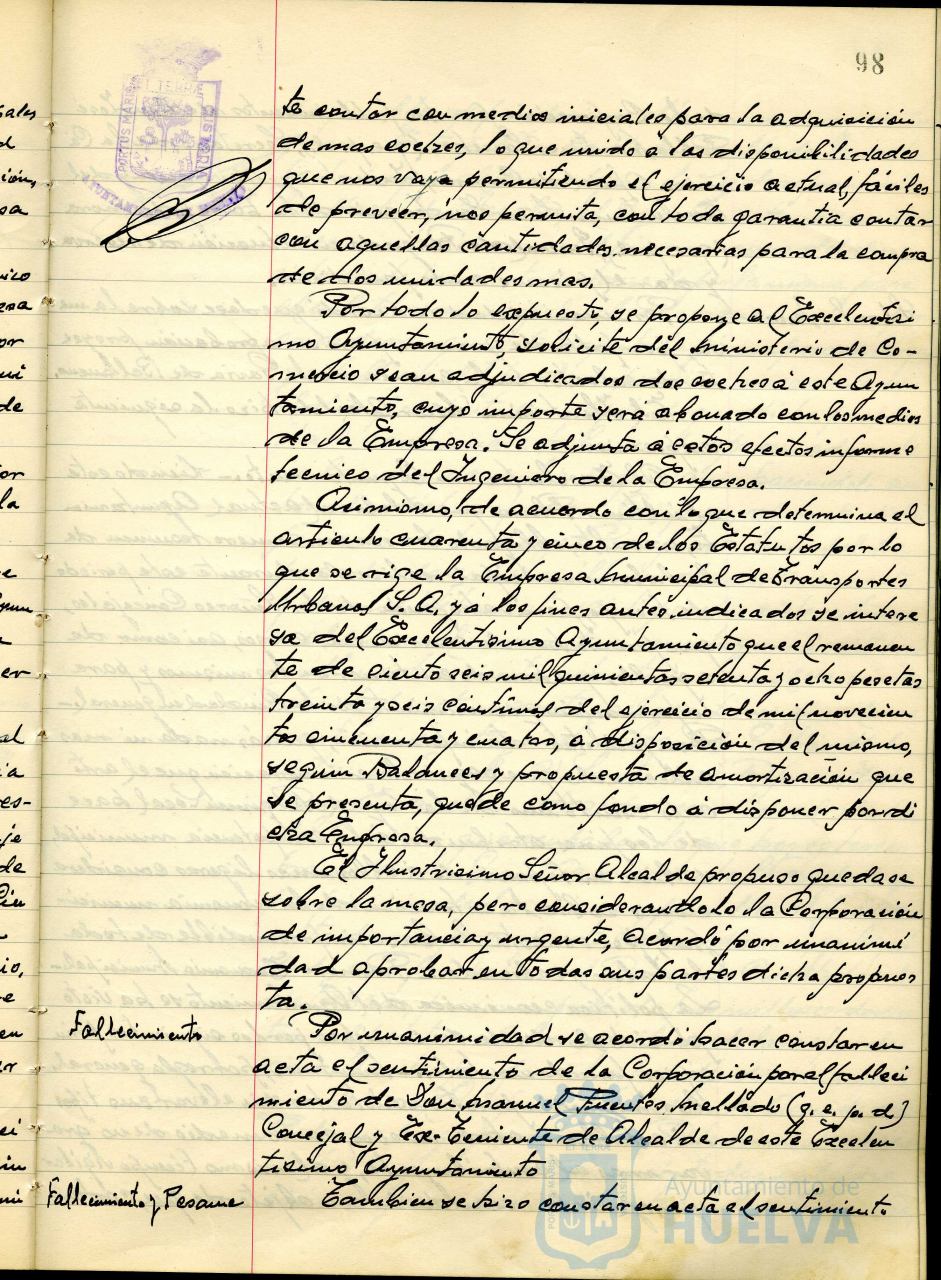 98
te contar con medios iniciales para la adquisición
de mas coches, lo que unido a las disponibilidades
que nos vaya permitiendo el ejercicio actual, fáciles
de preveer, nos permita, con toda garantia contar
con aquellas cantidades necesarias para la compra
de dos unidades mas.
Por todo lo expuesto, se propone al Excelentisi
mo Ayuntamiento, solicite del Ministerio de Co-
mercio sean adjudicados dos coches á este Ayun
tamiento, cuyo importe será abonado con los medios
de la Empresa. Se adjunta á estos efectos informe
tecnico del Ingeniero de la Empresa.
Asimismo, de acuerdo con lo que determina el
articulo cuarenta y cinco de los Estatutos por lo
que se rige la Empresa Municipal de Transportes
Urbanos S.A. y á los fines antes indicados se intere
sa del Excelentisimo Ayuntamiento que el remanen
te de ciento seis mil quinientas setenta y ocho pesetas
treinta y seis centimos del ejercicio de mil novecien
tos cincuenta y cuatro, á disposición del mismo,
según Balances y propuesta de amortización que
se presenta, quede como fondo á disponer por di
cha Empresa.
El Ilustrisimo Señor Alcalde propuso quedase
sobre la mesa, pero considerandolo la Corporación
de importancia y urgente, acordó por unanimi
dad aprobar en todas sus partes dicha propues
ta.
Fallecimiento
Por unanimidad se acordó hacer constar en
acta el sentimiento de la Corporación por el falleci
miento de Don Manuel Fuentes Mellado (q. e. p. d.)
Concejal y Ex-Teniente de Alcalde de este Excelen
tisimo Ayuntamiento
Fallecimiento y Pesame
Tambien se hizo constar en acta el sentimiento
Ayuntamiento de
HUELVA